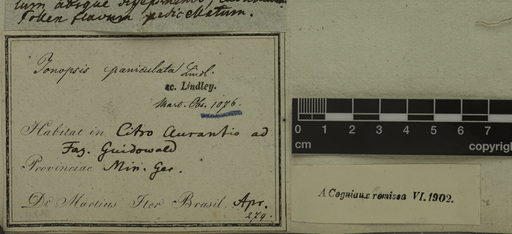 Pollen flavum pedicellatum.
Jonopsis paniculata Lindl.
ac. Lindley.
Mart. Obs. 1076.
Habitat in Citro Aurantio ad
Faz. Guidowald
Provinciae Min. Ger.
Dr Martius Iter Brasil. Apr.
279.
0 1 2 3 4 5 6 7
cm copyright
A Cogniaux remissa VI. 1902.